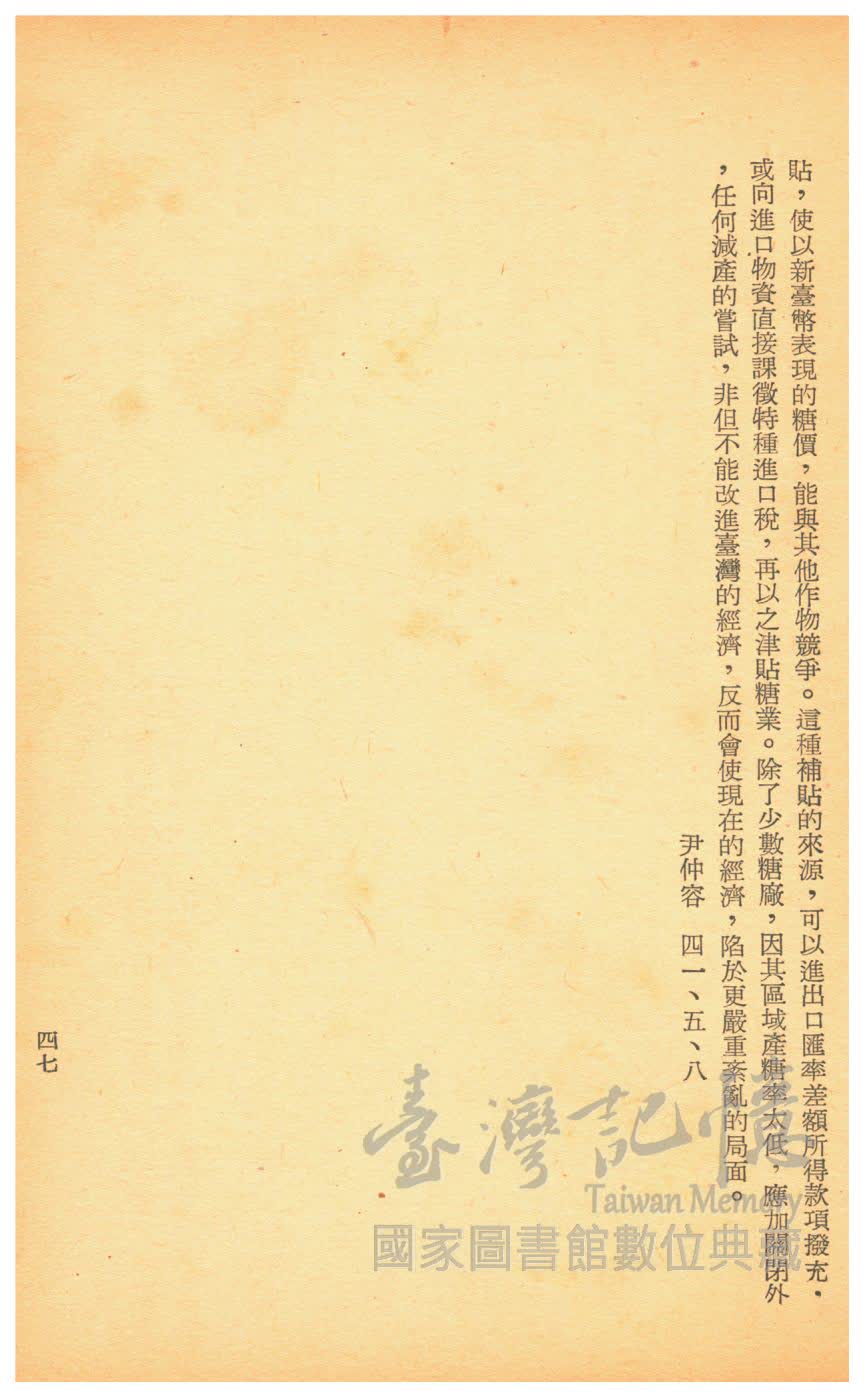 貼，使以新臺幣表現的糖價，能與其他作物競爭。這種補貼的來源，可以進出口匯率差額所得款項撥充，
或向進口物資直接課徵特種進口稅，再以之津貼糖業。除了少數糖廠，因其區域產糖率太低，應加關閉外
，任何減產的嘗試，非但不能改進臺灣的經濟，反而會使現在的經濟，陷於更嚴重紊亂的局面。
尹仲容　四一、五、八
四七
臺灣記憶
Taiwan Memory
國家圖書館數位典藏